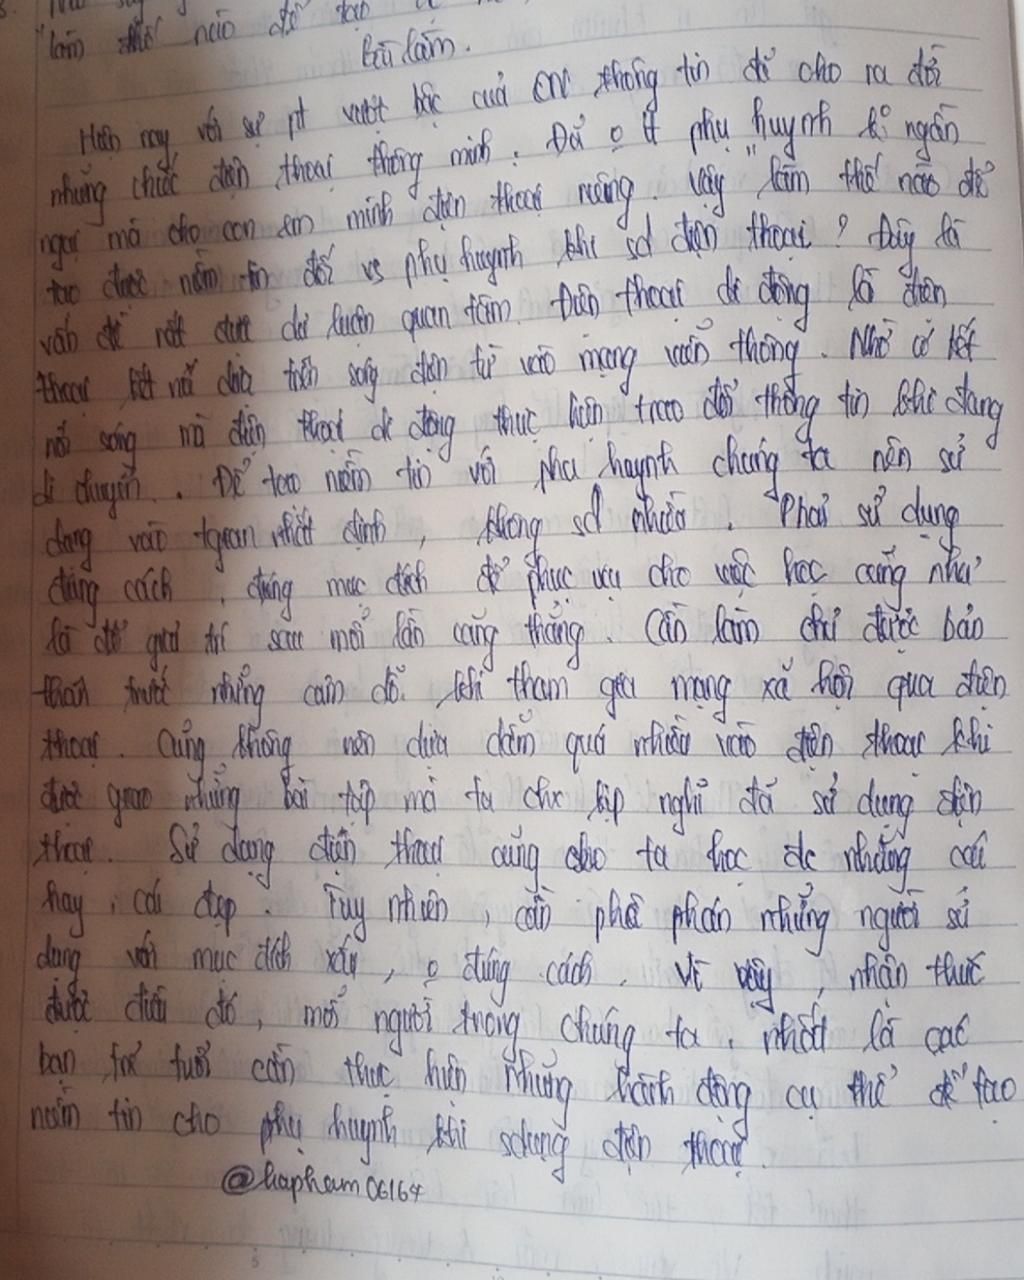 làm thế nào để tạo
Bài làm.
Hiện nay với sự pt vượt bậc của CN thông tin đã cho ra đời
những chiếc điện thoại thông minh. Đã o ít phụ huynh k ngần
ngại mà cho con em mình điện thoại riêng. Vậy "làm thế nào để
tạo được niềm tin đối vs phụ huynh khi sd điện thoại? Đây là
vấn đề rất được dư luận quan tâm. Điện thoại di động là điện
thoại kết nối dựa trên sóng điện từ vào mạng viễn thông. Nhờ có kết
nối sóng mà điện thoại di động thực hiện trao đổi thông tin khi đang
di chuyển. Để tạo niềm tin với phụ huynh chúng ta nên sử
dụng vào tgian nhất định, không sd nhiều. Phải sử dụng
đúng cách, đúng mục đích để phục vụ cho việc học cũng như
là để giải trí sau mỗi lần căng thẳng. Cần làm chủ được bản
thân trước những cám dỗ khi tham gia mạng xã hội qua điện
thoại. Cũng không nên dựa dẫm quá nhiều vào điện thoại khi
được giao những bài tập mà ta chx kịp nghĩ đã sử dụng điện
thoại. Sử dụng điện thoại cũng cho ta học đc những cái
hay, cái đẹp. Tuy nhiên, cần phê phán những người sử
dụng với mục đích xấu, o đúng cách. Vì vậy, nhận thức
được điều đó, mỗi người trong chúng ta, nhất là các
bạn trẻ tuổi cần thực hiện những hành động cụ thể để tạo
niềm tin cho phụ huynh khi sdụng điện thoại.
@hapham06164